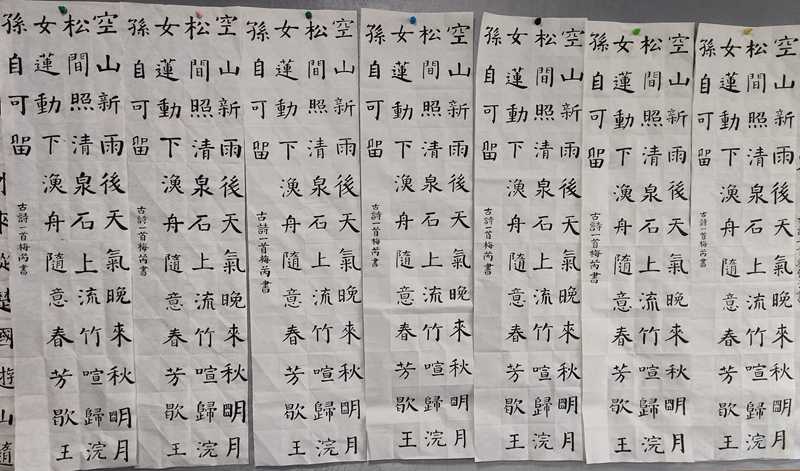 空山新雨後天氣晚來秋明月
松間照清泉石上流竹喧歸浣
女蓮動下漁舟隨意春芳歇王
孫自可留
古詩一首梅芮書
空山新雨後天氣晚來秋明月
松間照清泉石上流竹喧歸浣
女蓮動下漁舟隨意春芳歇王
孫自可留
古詩一首梅芮書
空山新雨後天氣晚來秋明月
松間照清泉石上流竹喧歸浣
女蓮動下漁舟隨意春芳歇王
孫自可留
古詩一首梅芮書
空山新雨後天氣晚來秋明月
松間照清泉石上流竹喧歸浣
女蓮動下漁舟隨意春芳歇王
孫自可留
古詩一首梅芮書
空山新雨後天氣晚來秋明月
松間照清泉石上流竹喧歸浣
女蓮動下漁舟隨意春芳歇王
孫自可留
古詩一首梅芮書
空山新雨後天氣晚來秋明月
松間照清泉石上流竹喧歸浣
女蓮動下漁舟隨意春芳歇王
孫自可留
古詩一首梅芮書
空山新雨後天氣晚來秋明月
松間照清泉石上流竹喧歸浣
女蓮動下漁舟隨意春芳歇王
孫自可留
古詩一首梅芮書
來從楚國遊山隨